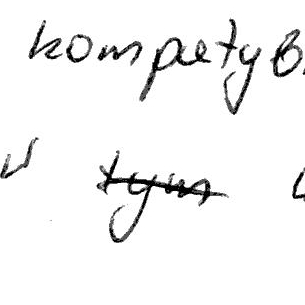 kompatyb
tym